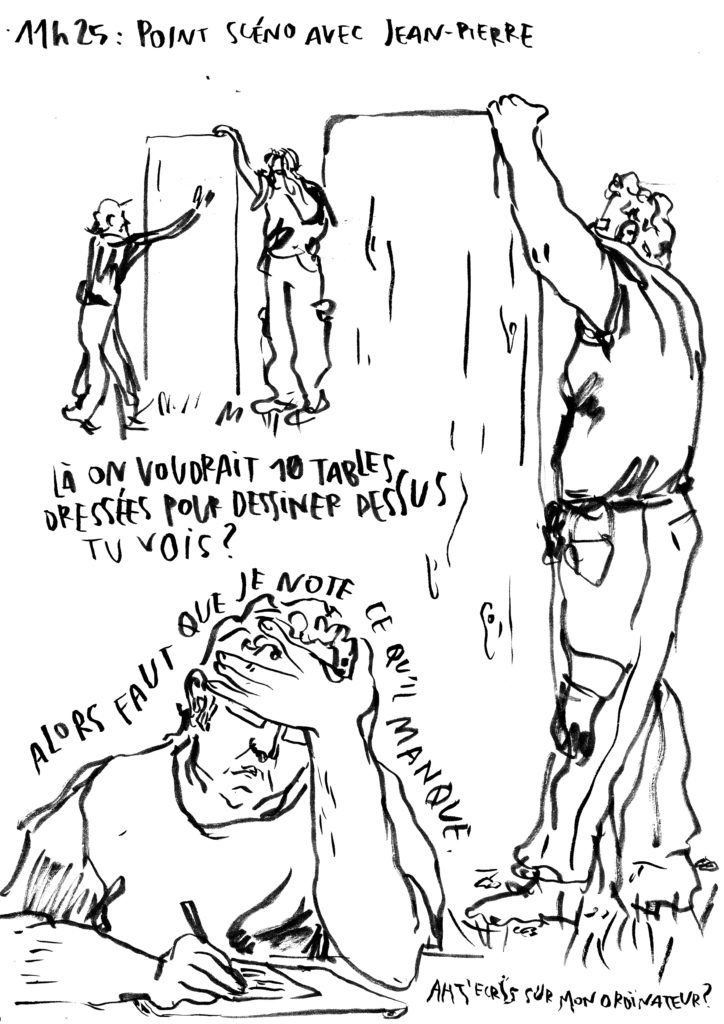 11h25 : POINT SCÉNO AVEC JEAN-PIERRE
LÀ ON VOUDRAIT 10 TABLES
DRESSÉES POUR DESSINER DESSUS
TU VOIS ?
ALORS FAUT QUE JE NOTE CE QU'IL MANQUE.
AH T'ECRIS SUR MON ORDINATEUR ?